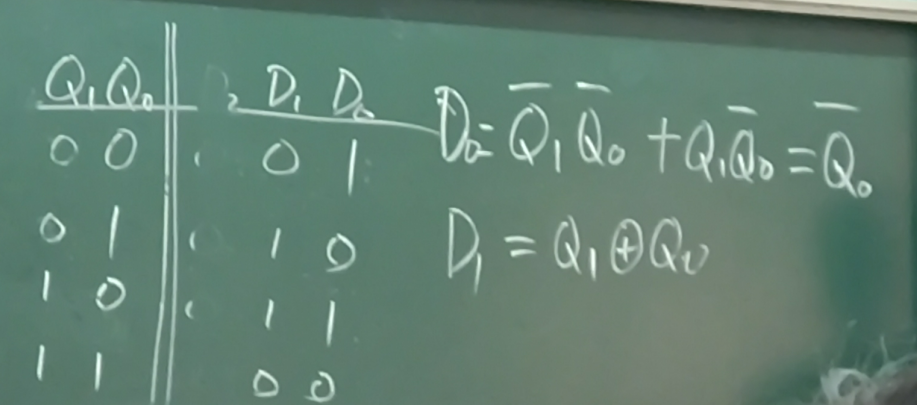 Q₁ Q₀ D₁ D₀
0 0 0 1
0 1 1 0
1 0 1 1
1 1 0 0
D₀ = Q̅₁Q̅₀ + Q₁Q̅₀ = Q̅₀
D₁ = Q₁⊕Q₀